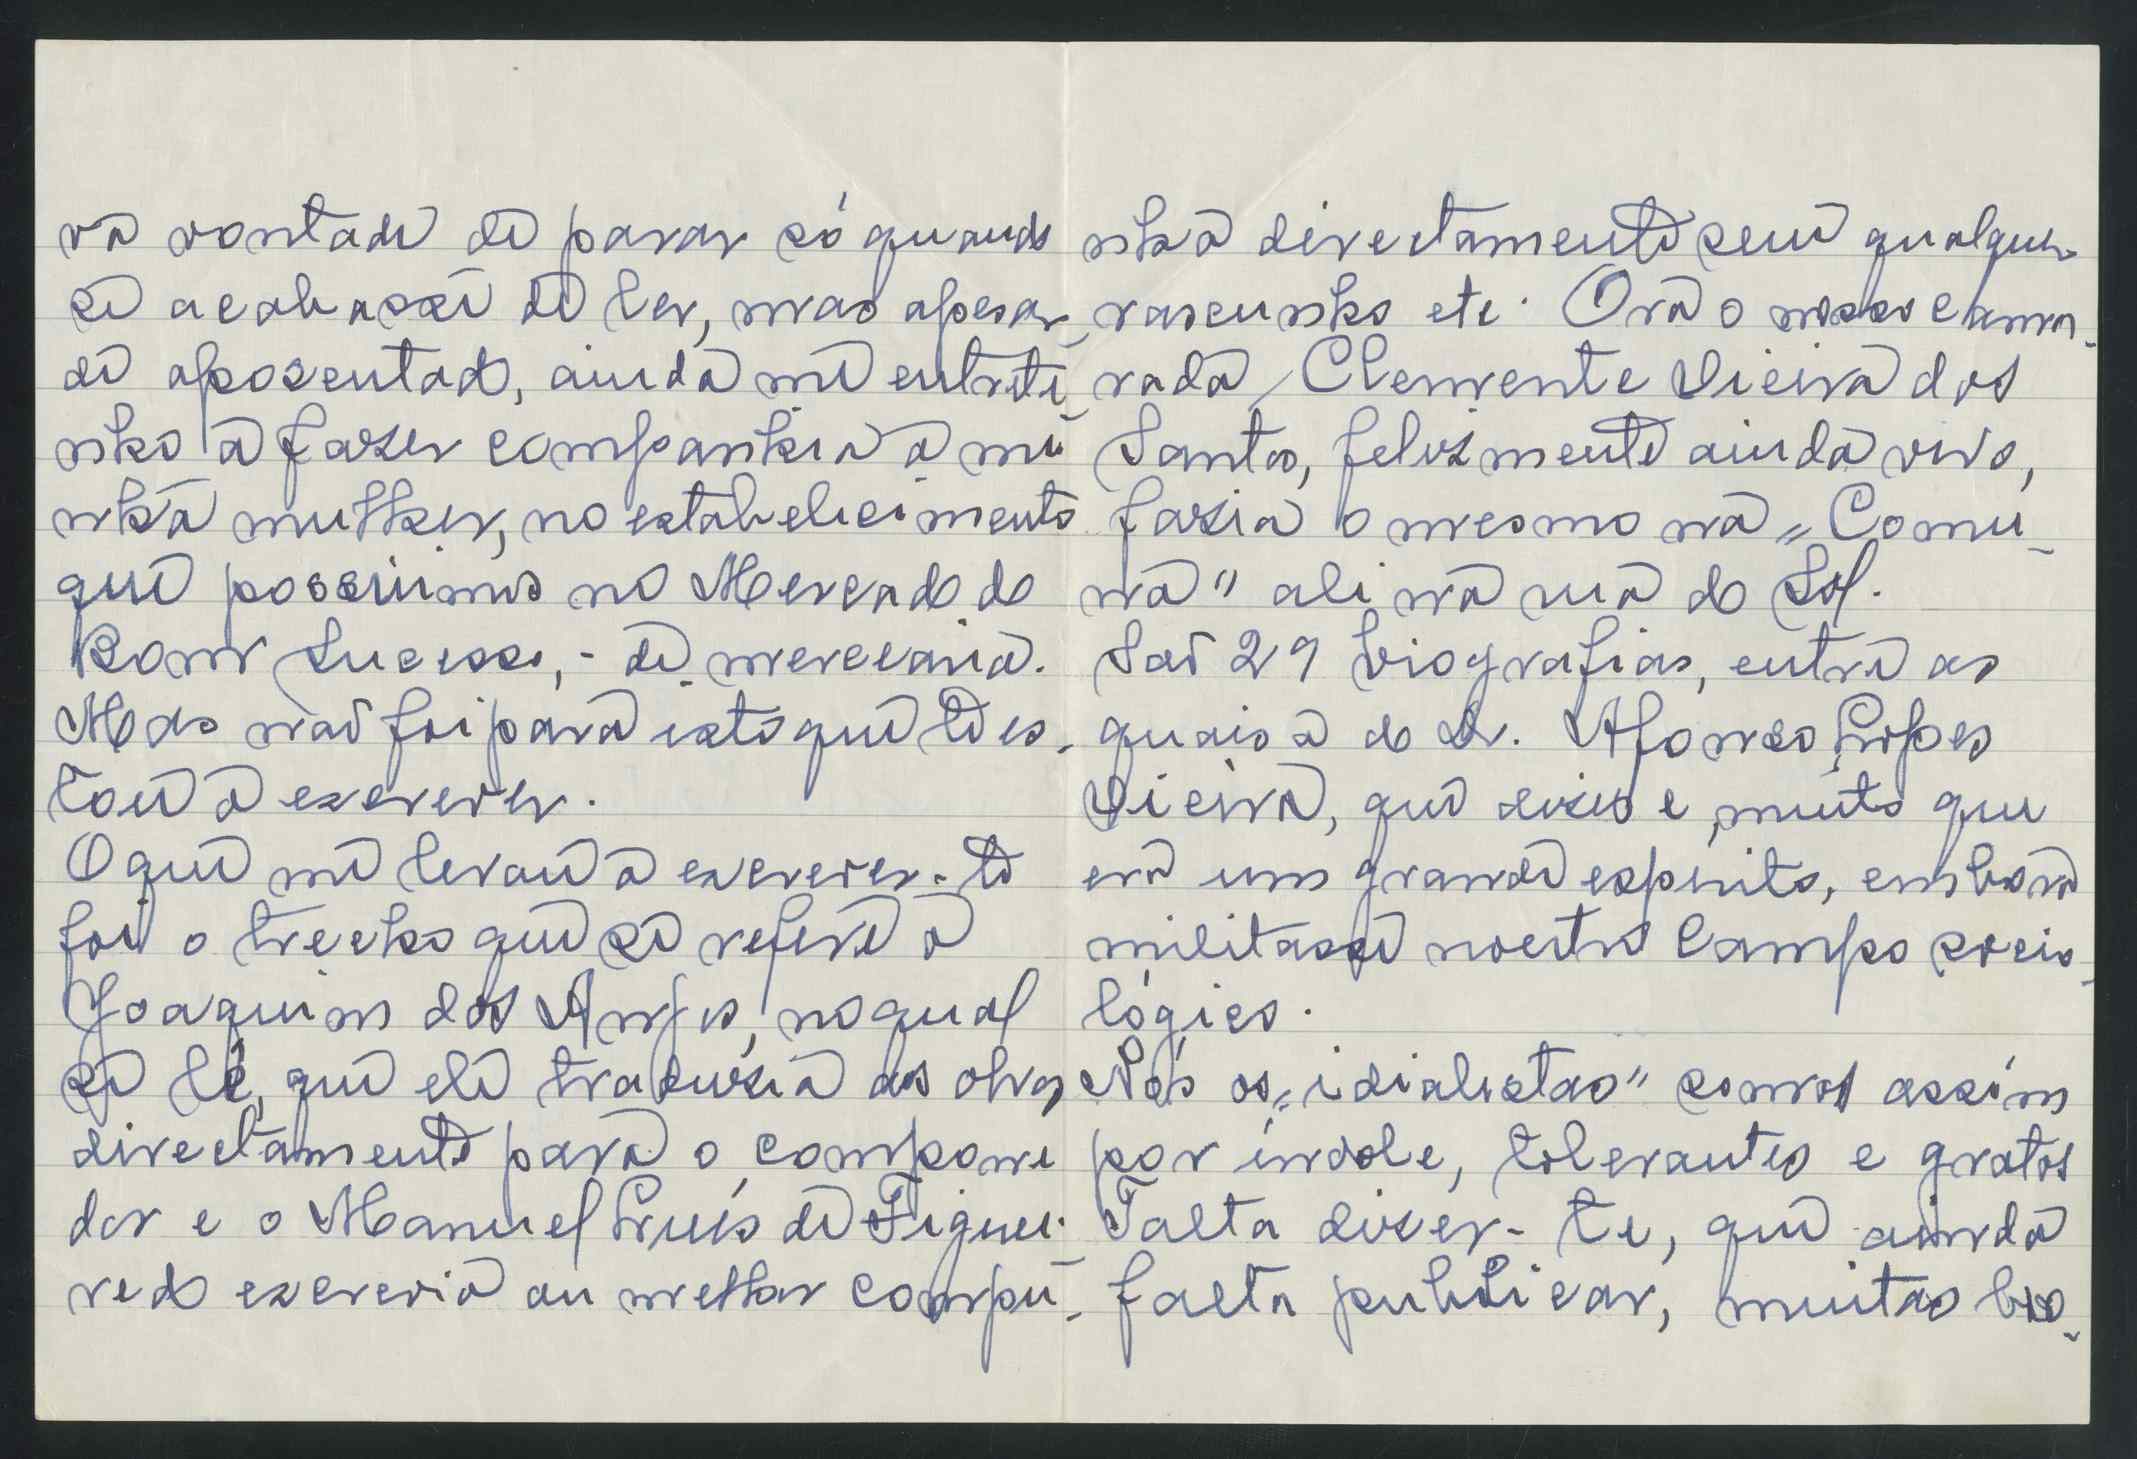 va vontade de parar só quando
se acabasse de ler, mas apesar
de aposentado, ainda me entrete-
nho a fazer companhia a mi
nha mulher, no estabelicimento
que possuimos no Mercado do
Bom Sucesso, - de mercearia.
Mas não foi para isto que te es-
tou a escrever.
O que me levou a escrever-te
foi o trecho que se refere a
Joaquim dos Anjos, no qual
se lê, que ele tradusia as obras
directamente para o componi
dor e o Manuel Luís de Figuei-
redo escrevia ou melhor compu-
nha directamente sem qualquer
rascunho etc. Ora o nosso cama-
rada, Clemente Vieira dos
Santos, felizmente ainda vivo,
fasia o mesmo na "Comu-
na" ali na rua do Sol.
São 29 biografias, entre as
quais a do Dr. Afonso Lopes
Vieira, que dizes e, muito que
era um grande espirito, embora
militasse noutro campo socio-
lógico.
Nós os "idialistas" somos assim
por indole, tolerantes e gratos
Falta dizer-te, que ainda
falta publicar, muitas bio-